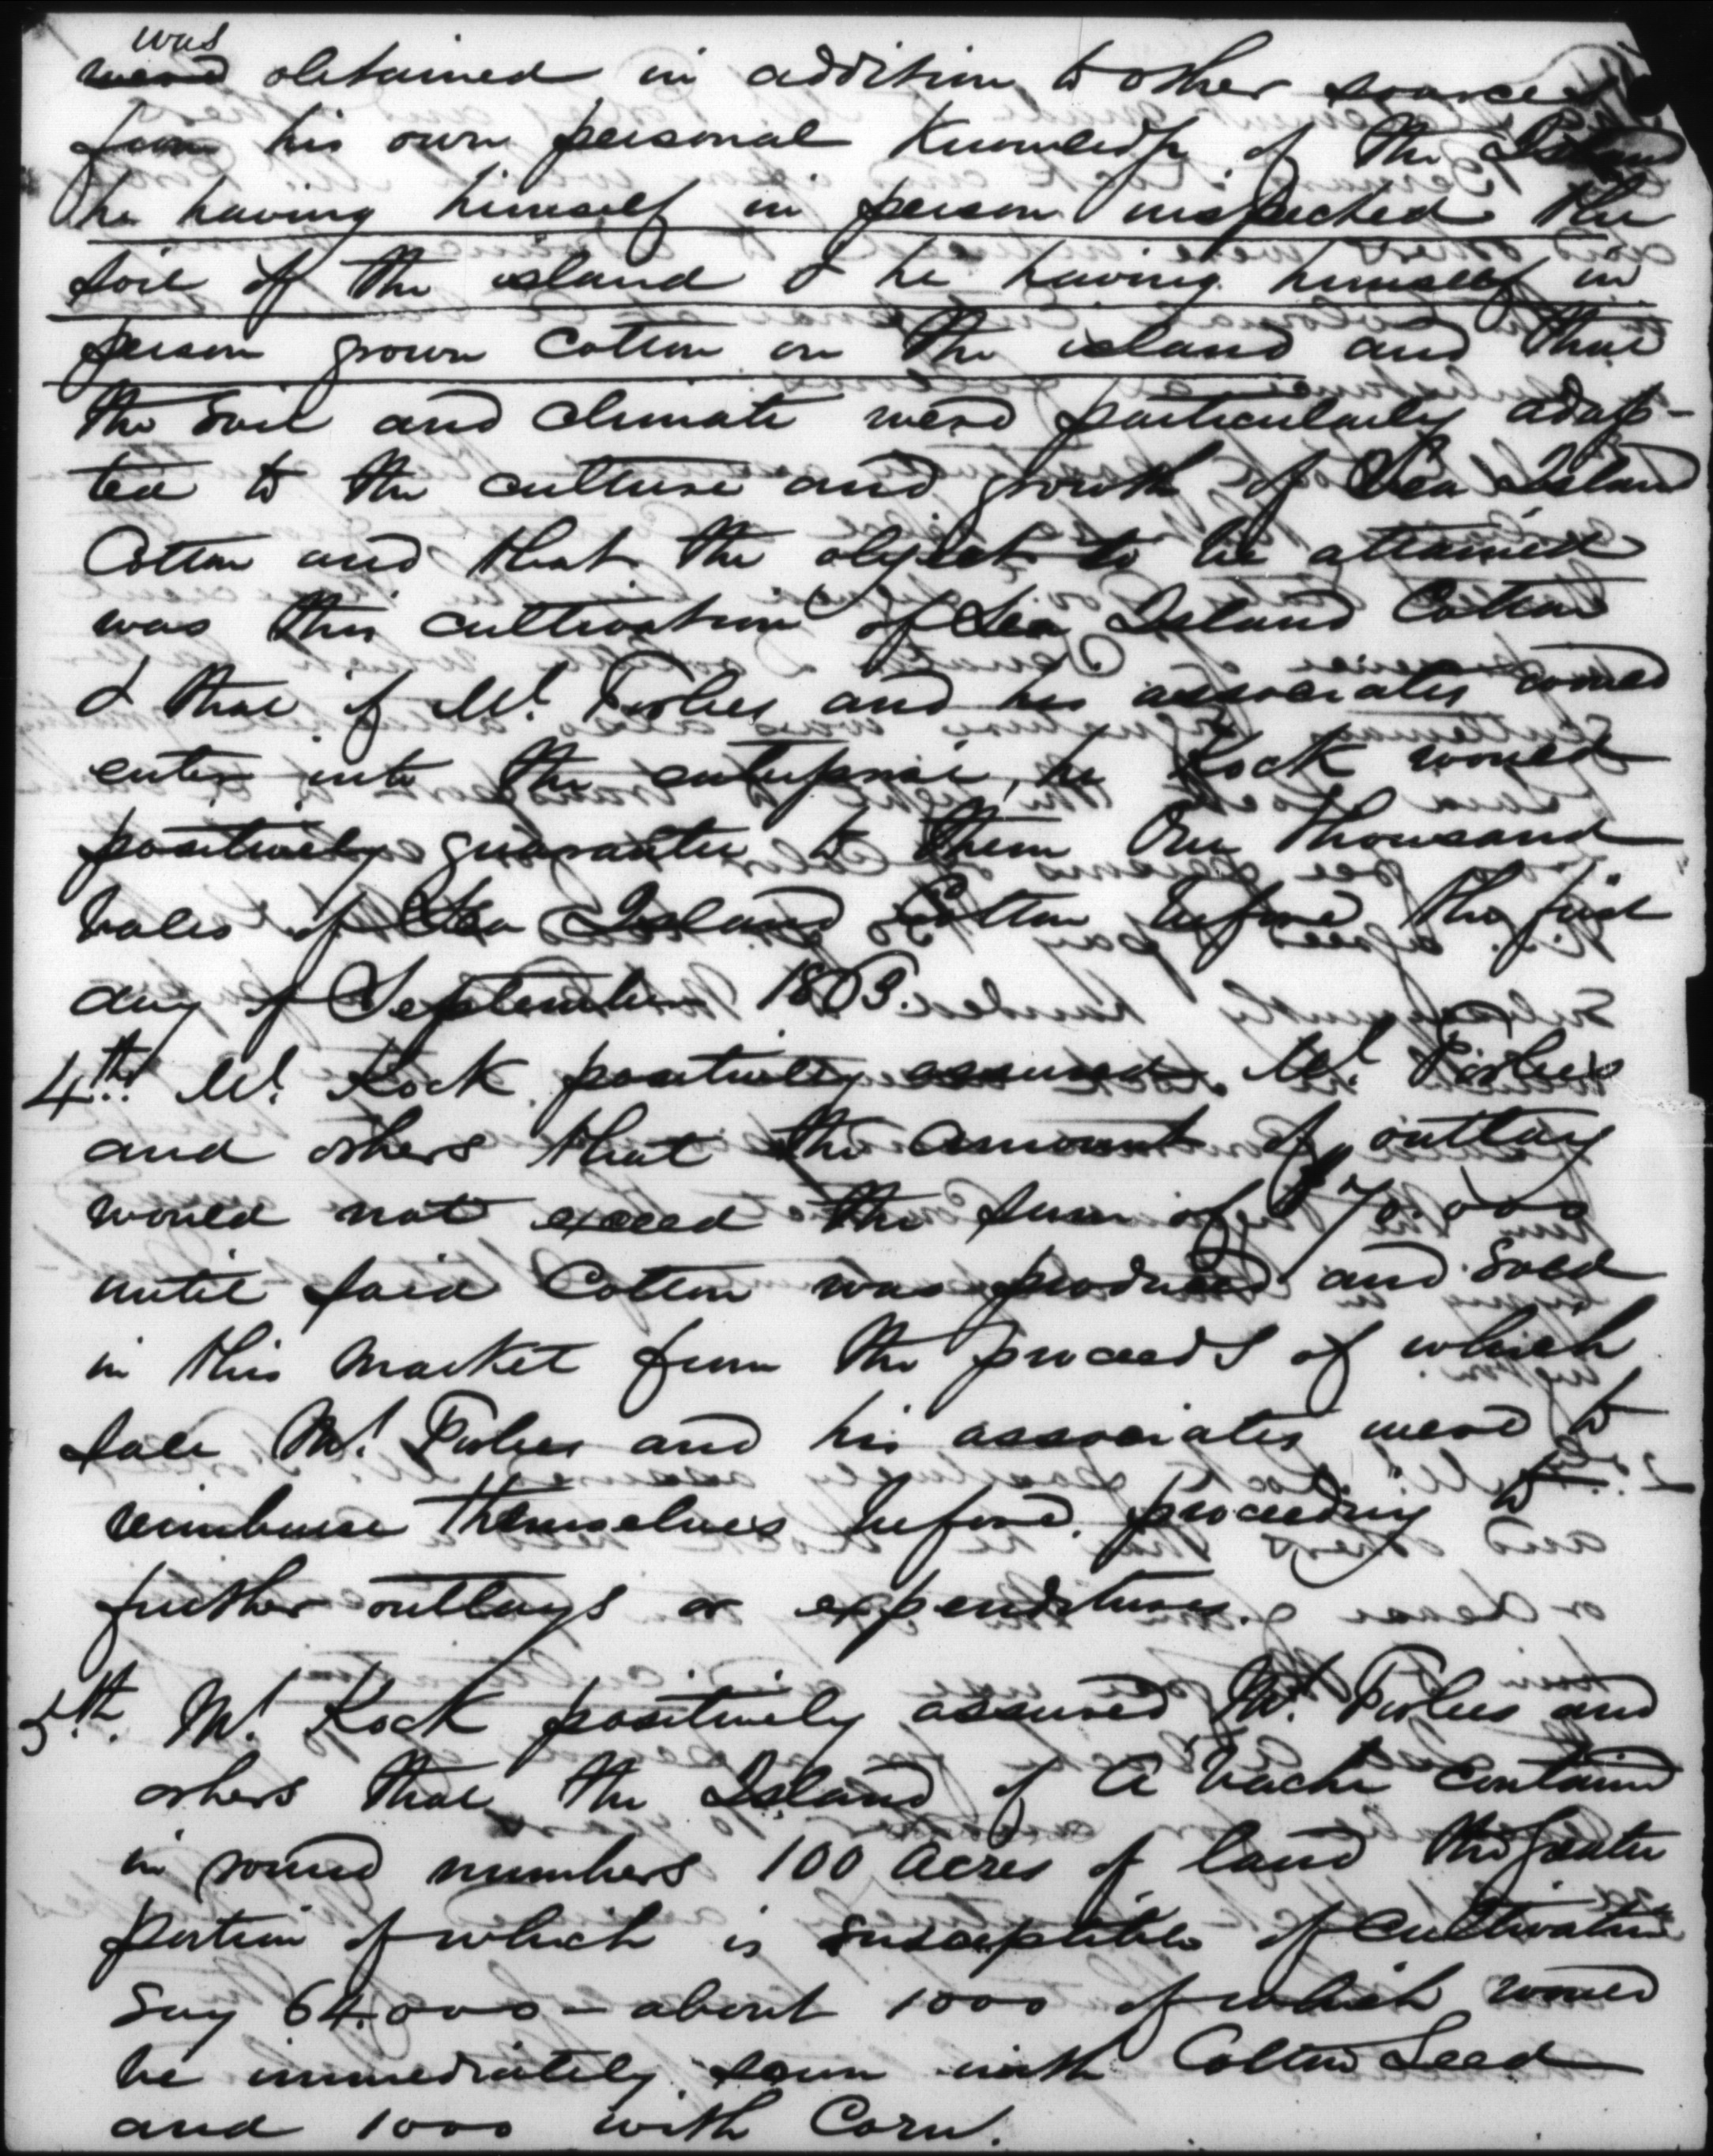 was
were obtained in addition to other sources
from his own personal Knowledge of the Island
he having himself in person inspected the
soil of the island & he having himself in
person grown Cotton on the island and that
the Soil and climate were particularly adap-
ted to the culture and growth of Sea Island
Cotton and that the object to be attained
was this cultivation of Sea Island Cotton
& that if Mr. Forbes and his associates would
enter into the enterprise, he Kock would
positively guarantee to them One Thousand
bales of Sea Island Cotton before the first
day of September 1863.
4th. Mr. Kock positively assured Mr. Forbes
and others that the amount of outlay
would not exceed the sum of $70.000
until said Cotton was produced and Sold
in this Market from the proceeds of which
sale Mr. Forbes and his associates were to
reimburse themselves before proceeding to
further outlays or expenditures.
5th. Mr. Kock positively assured Mr. Forbes and
others that the Island of A'Vache contained
in round numbers 100 Acres of land the greater
portion of which is susceptible of Cultivation
Say 64.000 - about 1000 of which would
be immediately sown with Cotton Seed
and 1000 with Corn.